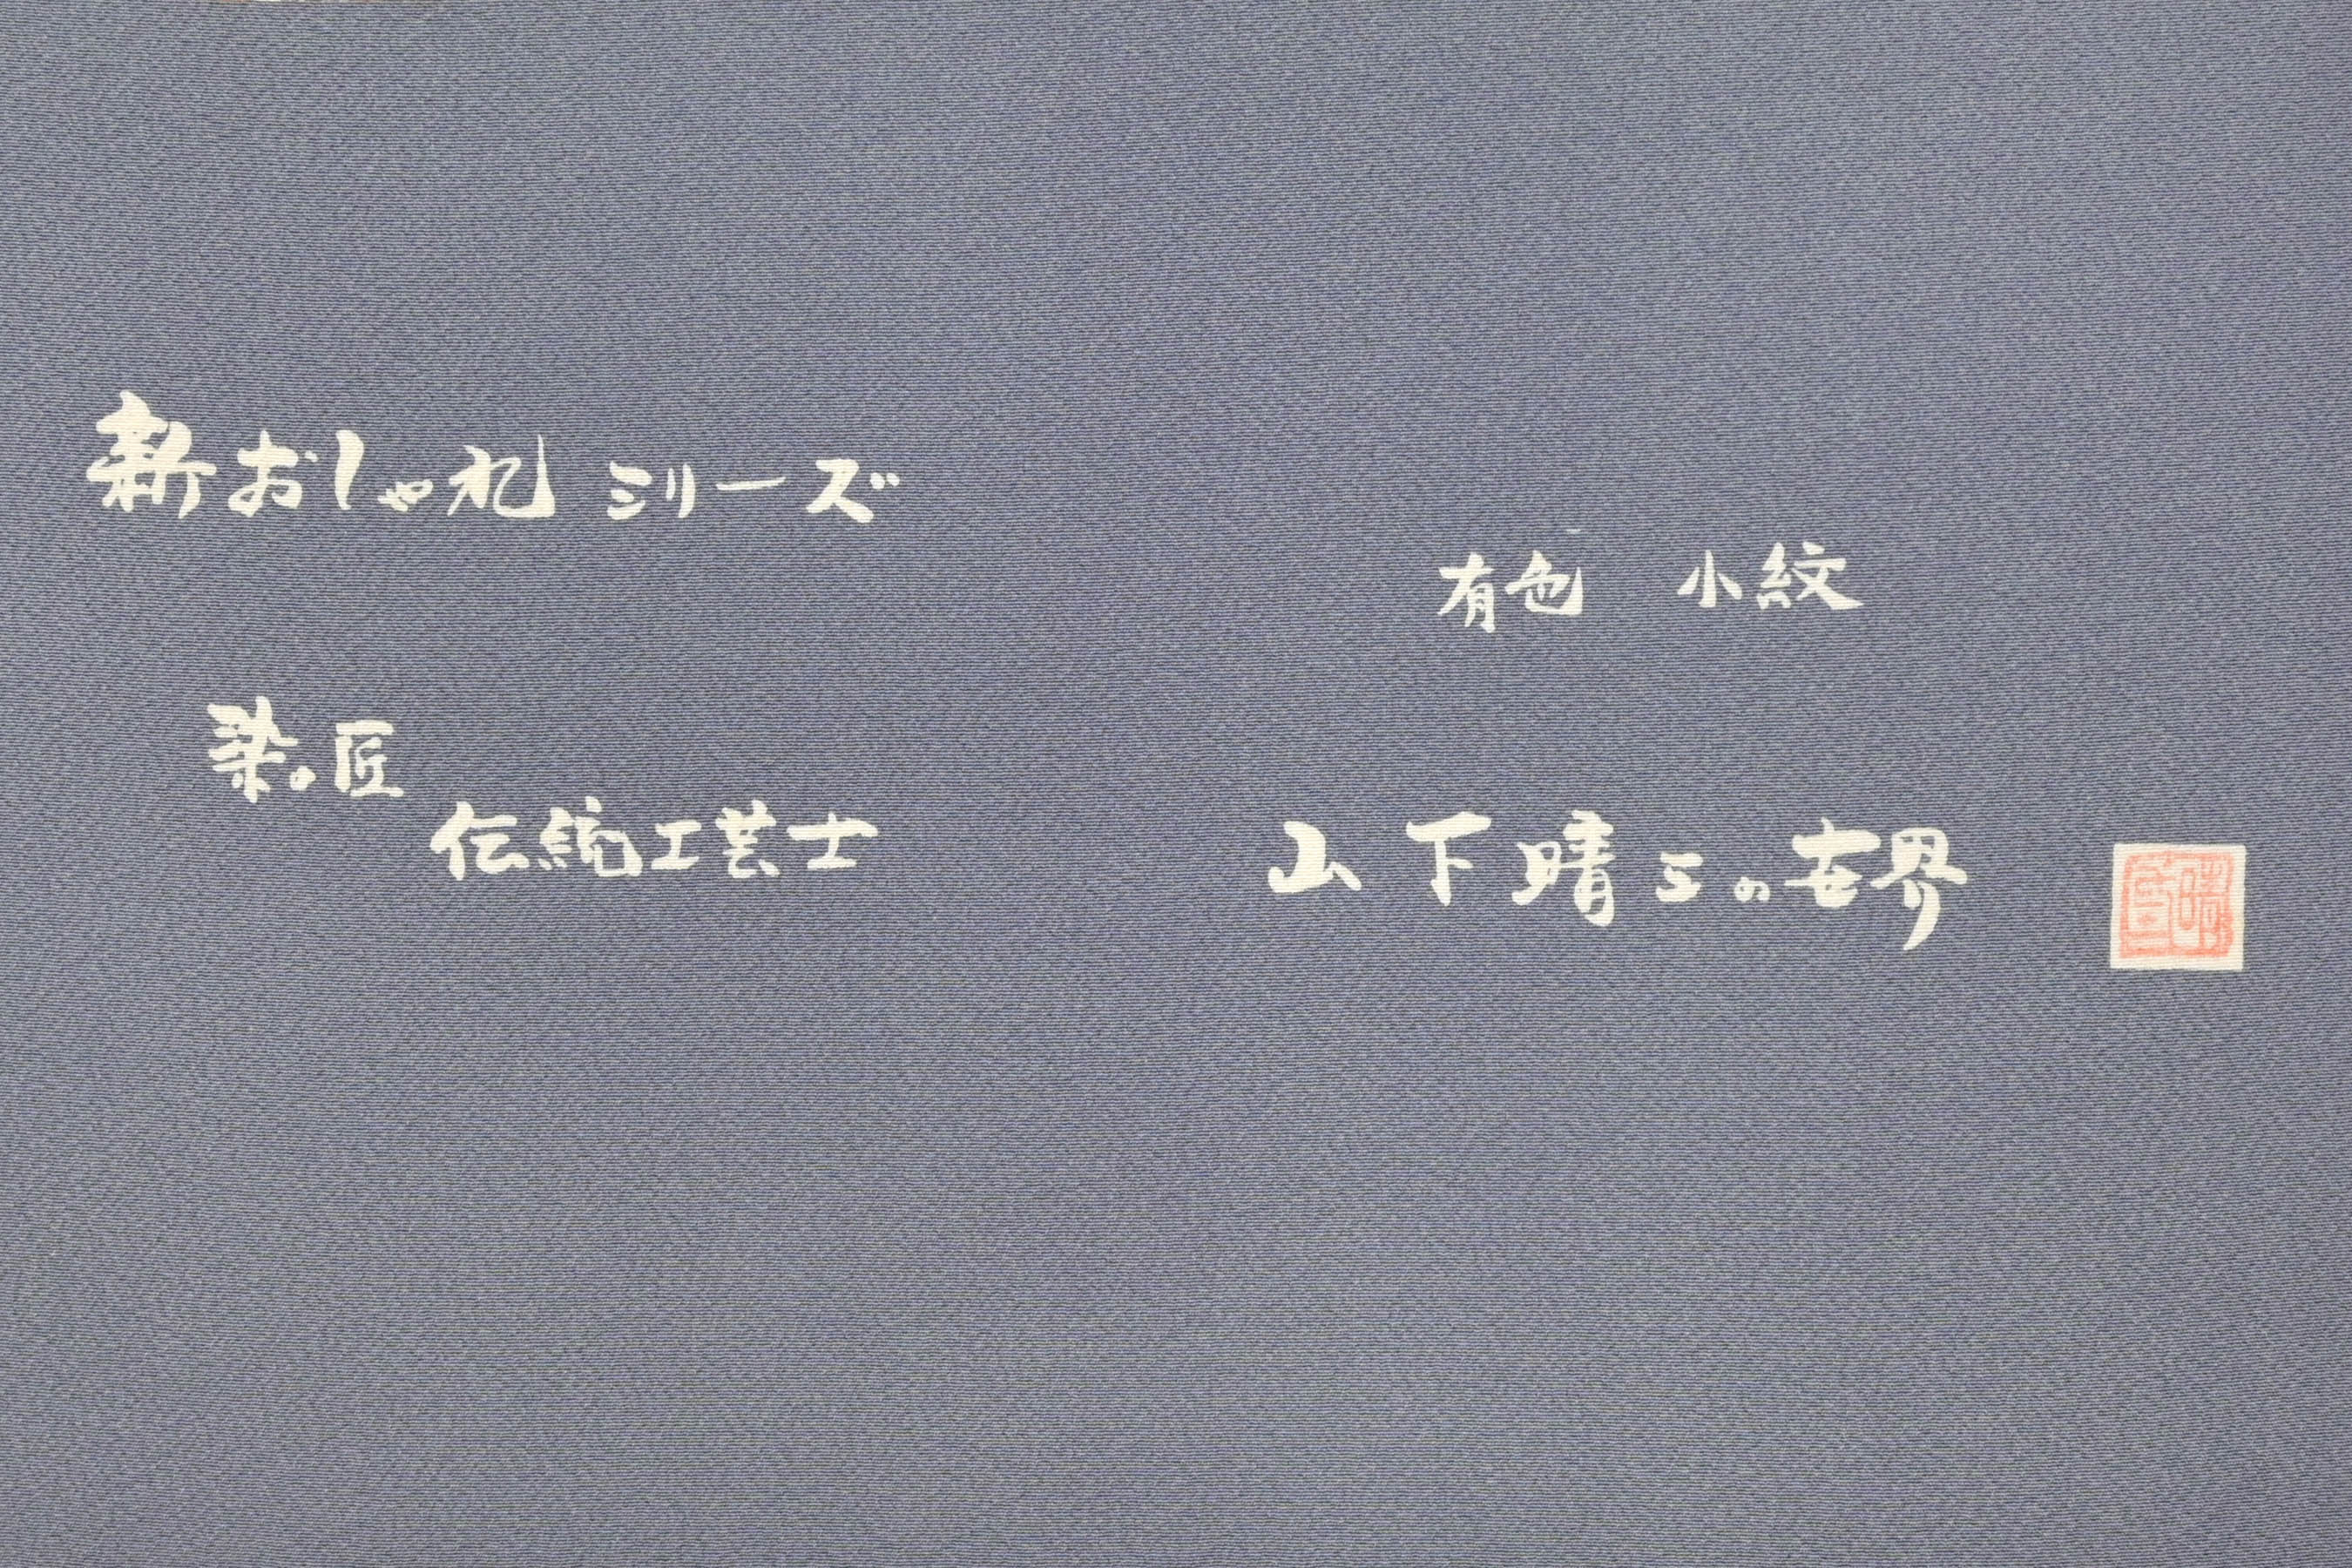 新おしゃれ シリーズ
有色 小紋
染の匠
伝統工芸士
山下晴三の世界